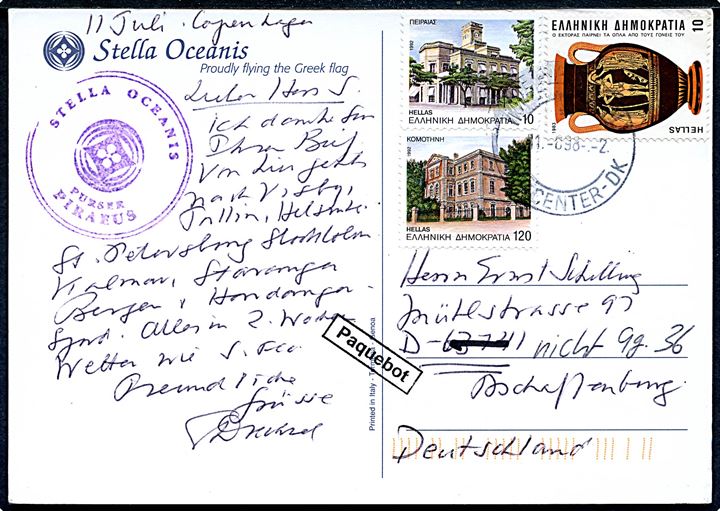 11 Juli. Copenhagen
Stella Oceanis
Proudly flying the Greek flag
STELLA OCEANIS
PURSER
PIRAEUS
Lieber Herr S.
ich danke für
Ihren Brief
Von hier geht's
nach Visby,
Tallin, Helsinki
St. Petersburg Stockholm
Kalmar, Stavanger
Bergen, Hardanger
fjord. Alles in 2. Wochen
Wetter wie S.
Freundliche
Grüsse
Paquebot
Printed in Italy
ΠΕΙΡΑΙΑΣ
1992
HELLAS
10
ΕΛΛΗΝΙΚΗ ΔΗΜΟΚΡΑΤΙΑ
ΚΟΜΟΤΗΝΗ
1992
HELLAS
ΕΛΛΗΝΙΚΗ ΔΗΜΟΚΡΑΤΙΑ 120
ΕΛΛΗΝΙΚΗ ΔΗΜΟΚΡΑΤΙΑ 10
Ο ΕΚΤΟΡΑΣ ΠΑΙΡΝΕΙ ΤΑ ΟΠΛΑ ΑΠΟ ΤΟΥΣ ΓΟΝΕΙΣ ΤΟΥ
1983
HELLAS
CENTER-DK
Herrn Ernst Schilling
Grühlstrasse 97
D- nicht 99.36
Aschaffenburg
Deutschland